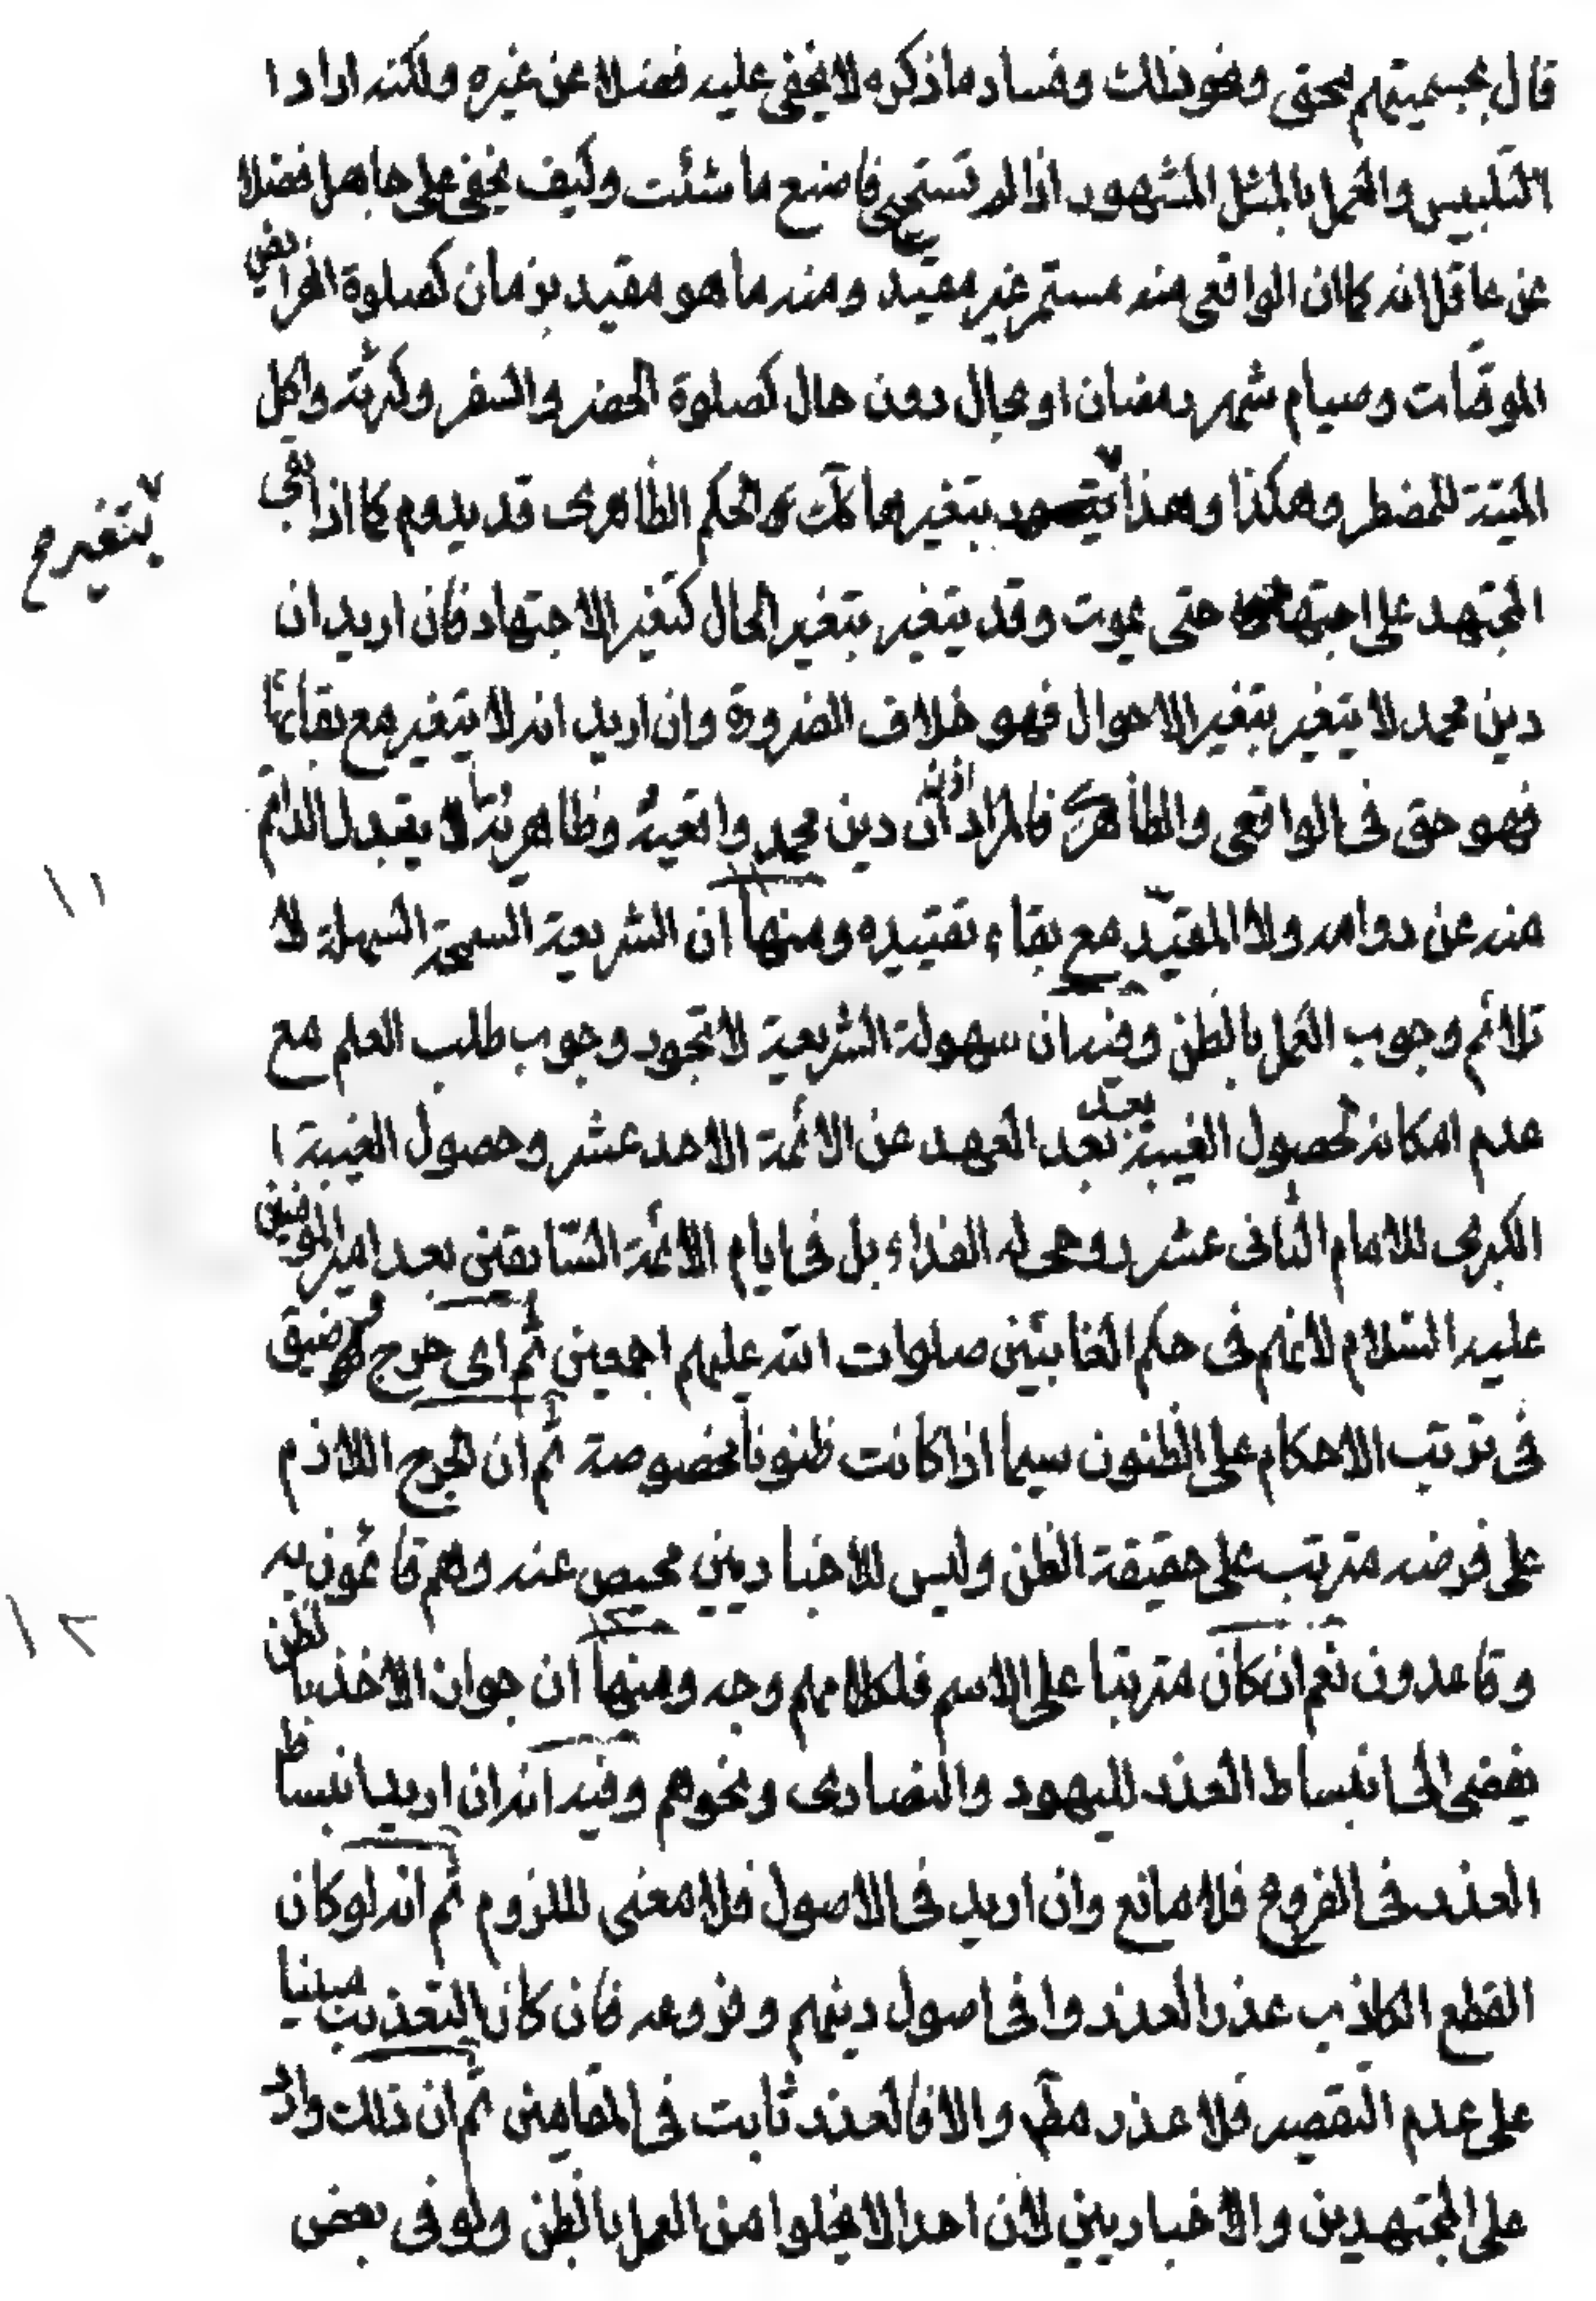 قال بجسميتهم لمحق ونحو ذلك وفساد ما ذكره لا يخفى عليه فضلا عن غيره ولكنه اراد ا
التلبيس والعمل بالمثل المشهور اذا لم تستحيى فاصنع ما شئت وكيف يخفى على جاهل فضلا
عن عاقل انه كما ان الواقعى منه مستمر غير مقيد ومنه ما هو مقيد بزمان كصلوة الفرائض
الموقتات وصيام شهر رمضان او بحال دون حال كصلوة الحضر والسفر وكرية واكل
الميتة للمضطر وهكذا وهذا يتغير بتغيرها كك الحكم الظاهرى قد يدوم كما اذا بقى
يتغير صح
المجتهد على اجتهاده حتى يموت وقد يتغير بتغير الحال كتغير الاجتهاد فان اريد ان
دين محمد لا يتغير بتغير الاحوال فهو خلاف الضرورة وان اريد انه لا يتغير مع بقائها
فهو حق فى الواقعى والظاهرى فالمراد اذن ان دين محمد واقعية وظاهرية لا يتبدل الدائم
١١
منه عن دوامه ولا المقيد مع بقاء تقييده ومنها ان الشريعة السمحة السهلة لا
تلائم وجوب العمل بالظن وفيه ان سهولة الشريعة لا تجوز وجوب طلب العلم مع
عدم امكانه لحصول الغيبة بعد بعد العهد عن الائمة الاحد عشر وحصول الغيبة ا
الكبرى للامام الثانى عشر روحى له الفداء بل فى ايام الائمة السابقين بعد امير المؤمنين
عليه السلام لانهم فى حكم الغائبين صلوات الله عليهم اجمعين ثم اى حرج وضيق
فى ترتب الاحكام على الظنون سيما اذا كانت ظنونا مخصوصة ثم ان الحرج اللازم
على فرضه مترتب على حقيقة الظن وليس للاخباريين محيص عنه وهم قائمون به
وقاعدون نعم ان كان مترتبا على الاسم فلكلامهم وجه ومنها ان جواز الاخذ بالظن
١٢
يفضى الى انبساط العذر لليهود والنصارى ونحوهم وفيه انه ان اريد انبساط
العذر فى الفروع فلا مانع وان اريد فى الاصول فلا معنى للزوم ثم انه لو كان
القطع الكاذب عذرا لعذروا فى اصول دينهم وفروعه فان كان التعذيب مبنيا
على عدم التقصير فلا عذر مط والا فالعذر ثابت فى المقامين ثم ان ذلك وارد
على المجتهدين والاخباريين لان احدا لا يخلوا من العمل بالظن ولو فى بعض